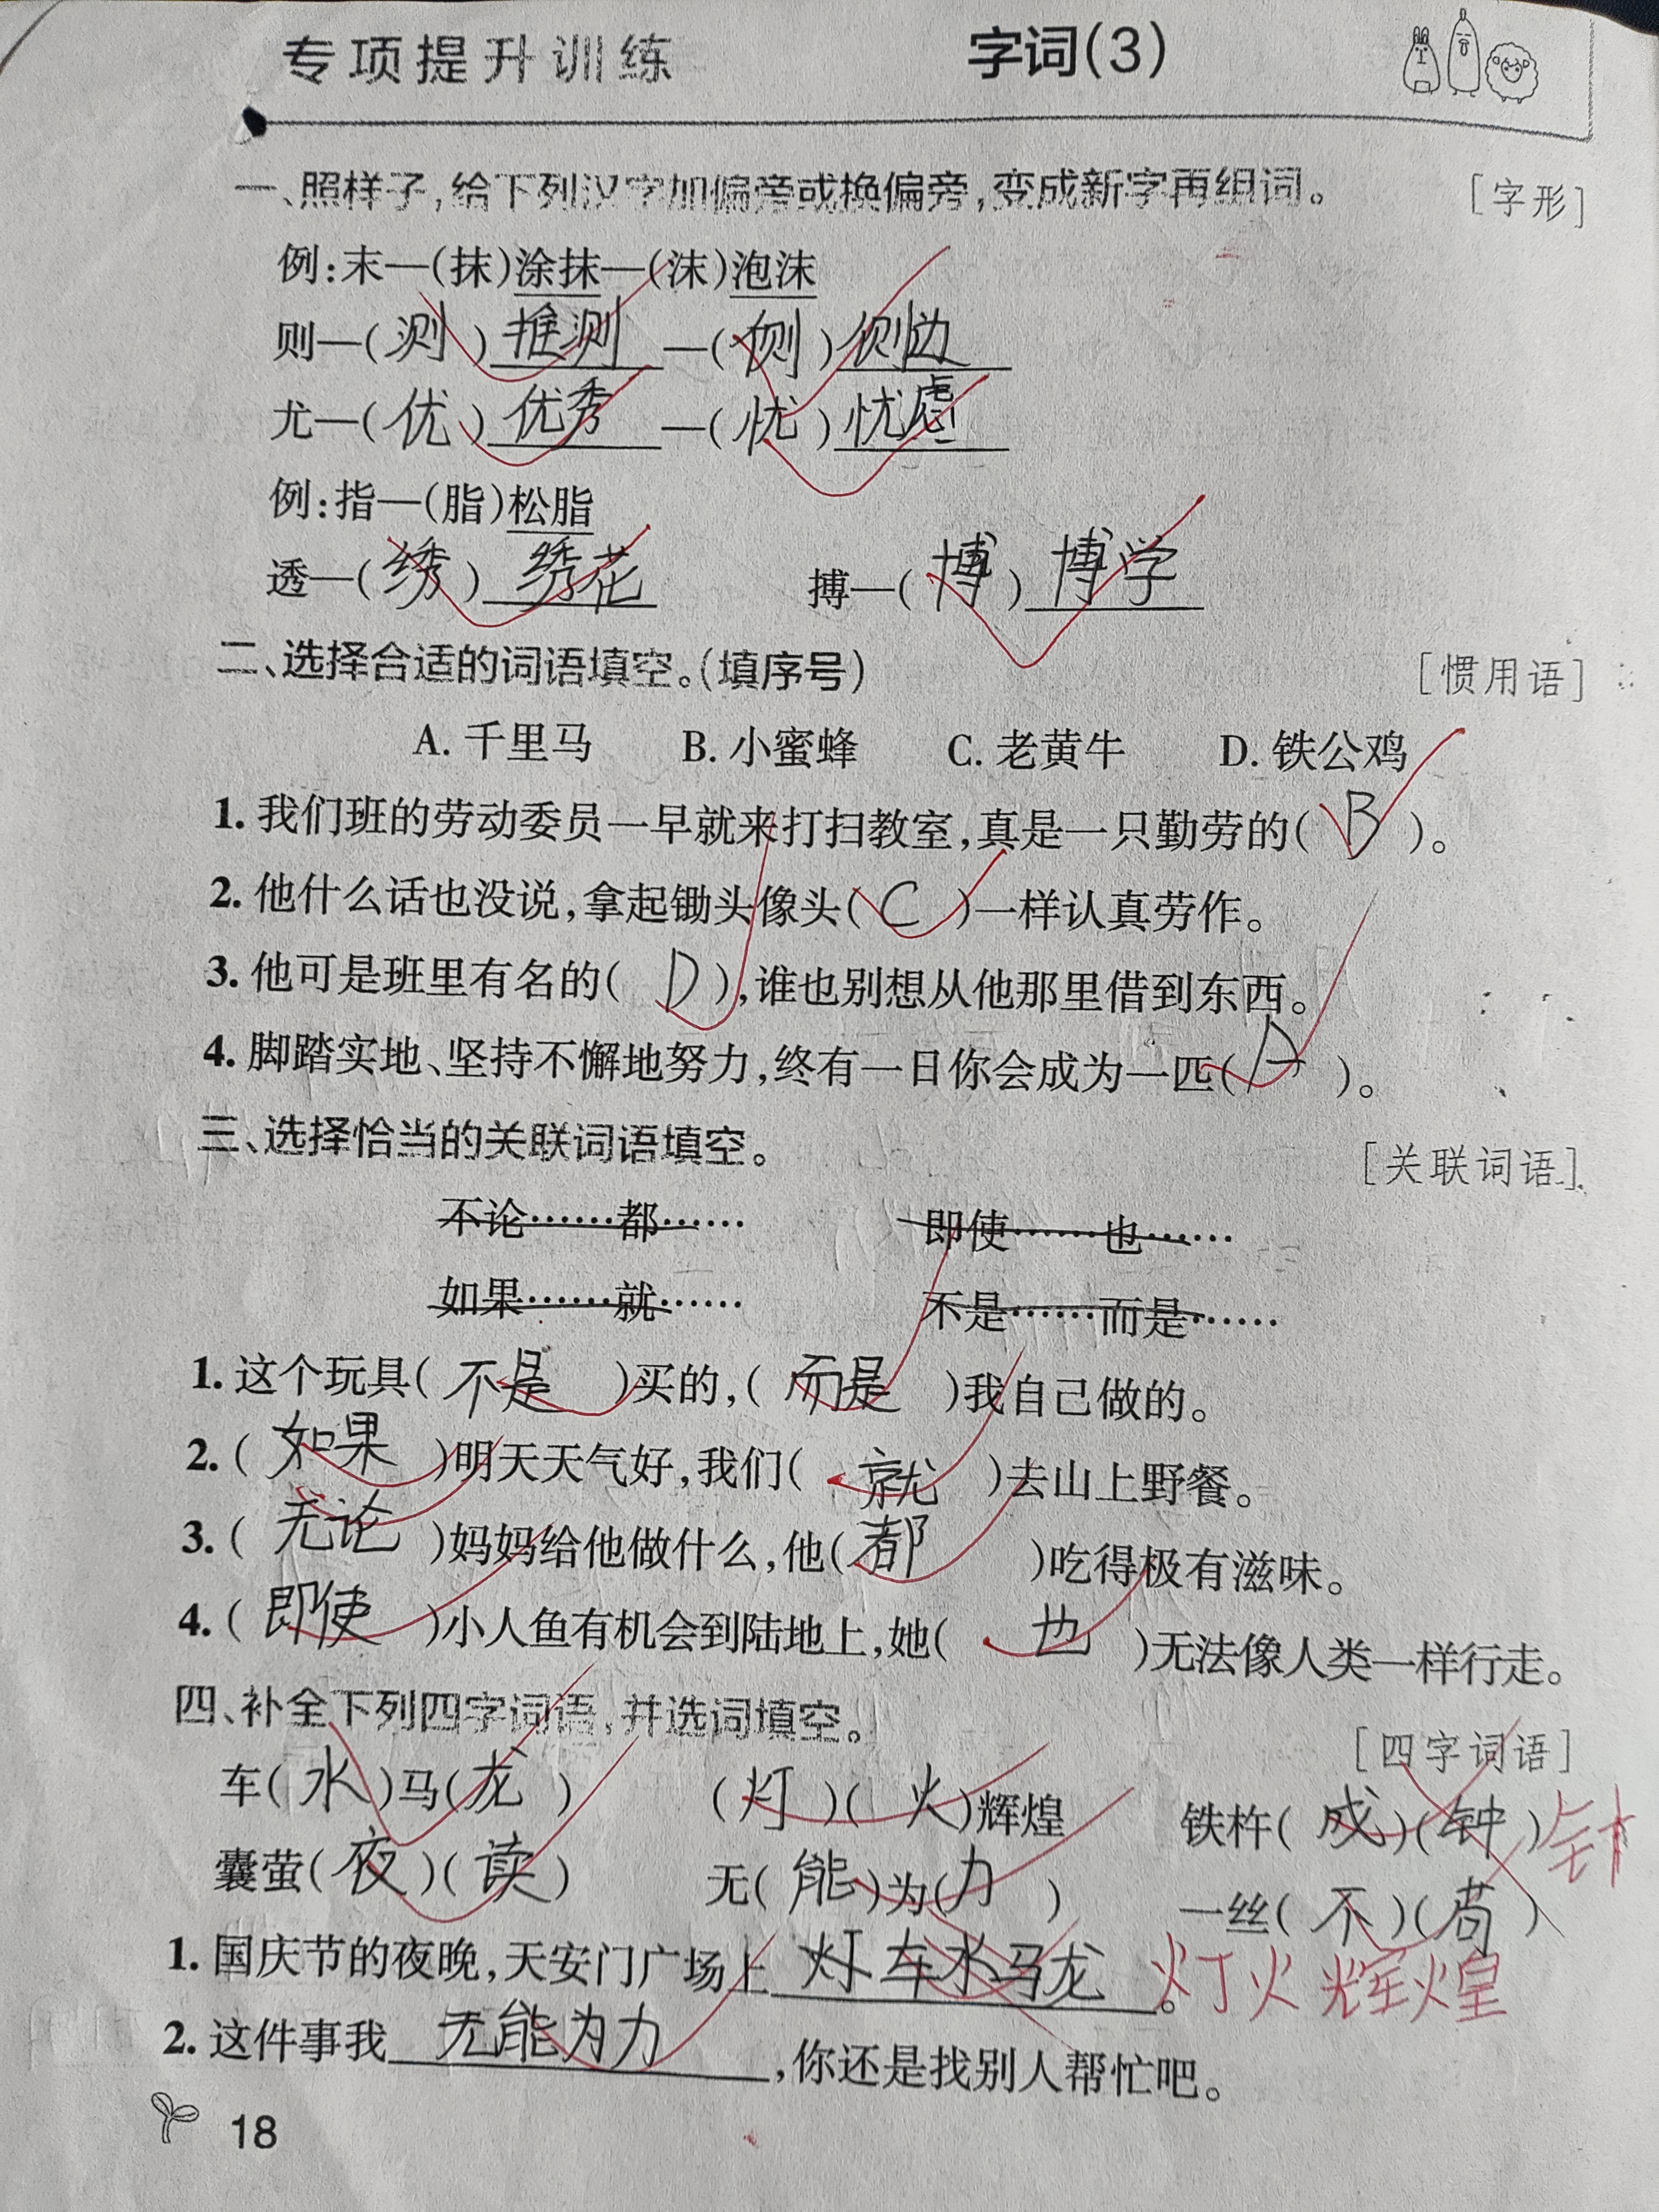 专项提升训练 字词(3)
一、照样子,给下列汉字加偏旁或换偏旁,变成新字再组词。 [字形]
例:末—(抹)涂抹—(沫)泡沫
则—(测)推测—(侧)侧边
尤—(优)优秀—(忧)忧虑
例:指—(脂)松脂
透—(绣)绣花 搏—(博)博学
二、选择合适的词语填空。(填序号) [惯用语]
A. 千里马 B. 小蜜蜂 C. 老黄牛 D. 铁公鸡
1. 我们班的劳动委员一早就来打扫教室,真是一只勤劳的(B)。
2. 他什么话也没说,拿起锄头像头(C)一样认真劳作。
3. 他可是班里有名的(D),谁也别想从他那里借到东西。
4. 脚踏实地、坚持不懈地努力,终有一日你会成为一匹(A)。
三、选择恰当的关联词语填空。 [关联词语]
不论……都…… 即使……也……
如果……就…… 不是……而是……
1. 这个玩具(不是)买的,(而是)我自己做的。
2. (如果)明天天气好,我们(就)去山上野餐。
3. (无论)妈妈给他做什么,他(都)吃得极有滋味。
4. (即使)小人鱼有机会到陆地上,她(也)无法像人类一样行走。
四、补全下列四字词语,并选词填空。 [四字词语]
车(水)马(龙) (灯)(火)辉煌 铁杵(成)(钟) 针
囊萤(夜)(读) 无(能)为(力) 一丝(不)(苟)
1. 国庆节的夜晚,天安门广场上灯车水马龙。灯火辉煌
2. 这件事我无能为力,你还是找别人帮忙吧。
18